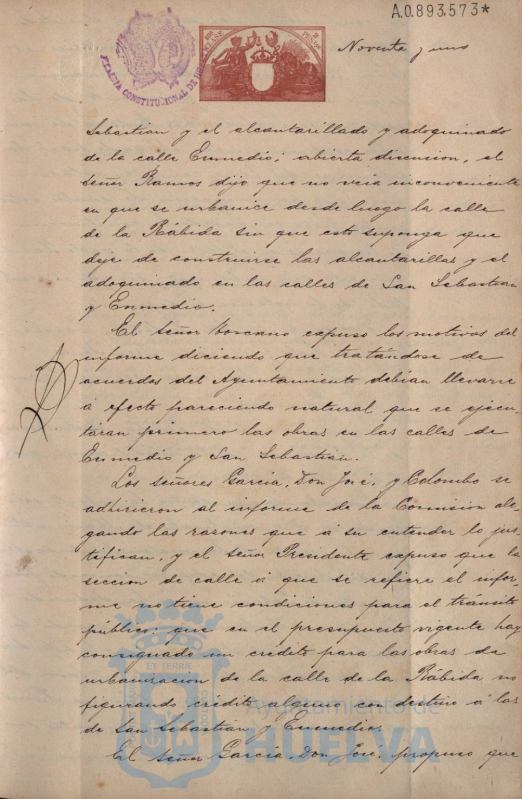 A.0.893.573*
Noventa y uno
ALCALDIA CONSTITUCIONAL DE HUELVA
Sebastian y el alcantarillado y adoquinado
de la calle Enmedio; abierta discusion, el
Señor Ramos dijo que no veia inconveniente
en que se urbanice desde luego la calle
de la Rábida sin que esto suponga que
deje de construirse las alcantarillas y el
adoquinado en las calles de San Sebastian
y Enmedio.
El Señor Toscano expuso los motivos del
informe diciendo que tratándose de
acuerdos del Ayuntamiento debian llevarse
á efecto pareciendo natural que se ejecu
taran primero las obras en las calles de
Enmedio y San Sebastian.
Los Señores Garcia, Don José, y Colombo se
adhirieron al informe de la Comision ale
gando las razones que á su entender lo jus
tifican, y el señor Presidente expuso que la
seccion de calle á que se refiere el infor
me no tiene condiciones para el tránsito
público; que en el presupuesto vigente hay
consignado un credito para las obras de
urbanizacion de la calle de la Rábida no
figurando crédito alguno con destino á las
de San Sebastian y Enmedio.
El Señor Garcia, Don José, propuso que
Ayuntamiento de
HUELVA